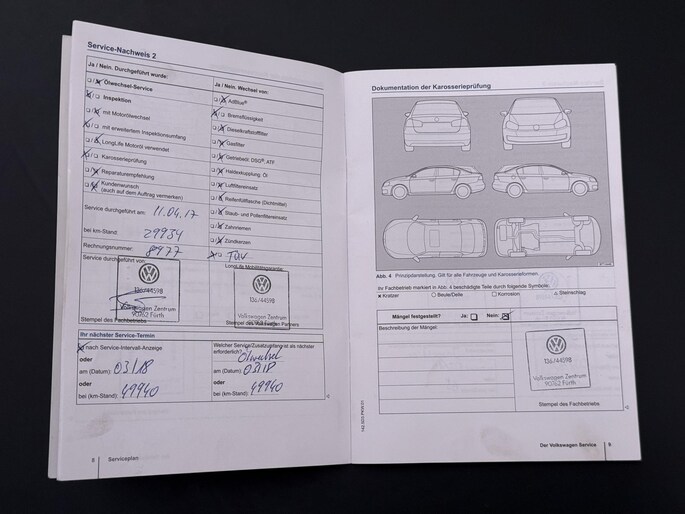 Service-Nachweis 2
Ja / Nein. Durchgeführt wurde:
Ölwechsel-Service
Inspektion
mit Motorölwechsel
mit erweitertem Inspektionsumfang
LongLife Motoröl verwendet
Karosserieprüfung
Reparaturempfehlung
Kundenwunsch
(auch auf dem Auftrag vermerken)
Service durchgeführt am: 11.04.17
bei km-Stand: 29984
Rechnungsnummer: 8977
Service durchgeführt von:
136/44598
Volkswagen Zentrum
90762 Fürth
Stempel des Fachbetriebs
Ja / Nein. Wechsel von:
AdBlue®
Bremsflüssigkeit
Dieselkraftstofffilter
Gasfilter
Getriebeöl: DSG®, ATF
Haldexkupplung, Öl
Luftfiltereinsatz
Reifenfüllflasche (Dichtmittel)
Staub- und Pollenfiltereinsatz
Zahnriemen
Zündkerzen
TÜV
LongLife Mobilitätsgarantie:
136/44598
Volkswagen Zentrum
90762 Fürth
Stempel des Volkswagen Partners
Ihr nächster Service-Termin
nach Service-Intervall-Anzeige
oder
am (Datum): 03/18
oder
bei (km-Stand): 49940
Welcher Service/Zusatzumfang ist als nächster
erforderlich? Ölwechsel
am (Datum): 03/18
oder
bei (km-Stand): 49940
8 Serviceplan
Dokumentation der Karosserieprüfung
Abb. 4 Prinzipdarstellung. Gilt für alle Fahrzeuge und Karosserieformen.
Ihr Fachbetrieb markiert in Abb. 4 beschädigte Teile durch folgende Symbole:
Kratzer Beule/Delle Korrosion Steinschlag
Mängel festgestellt? Ja: Nein:
Beschreibung der Mängel:
136/44598
Volkswagen Zentrum
90762 Fürth
Stempel des Fachbetriebs
Der Volkswagen Service 9